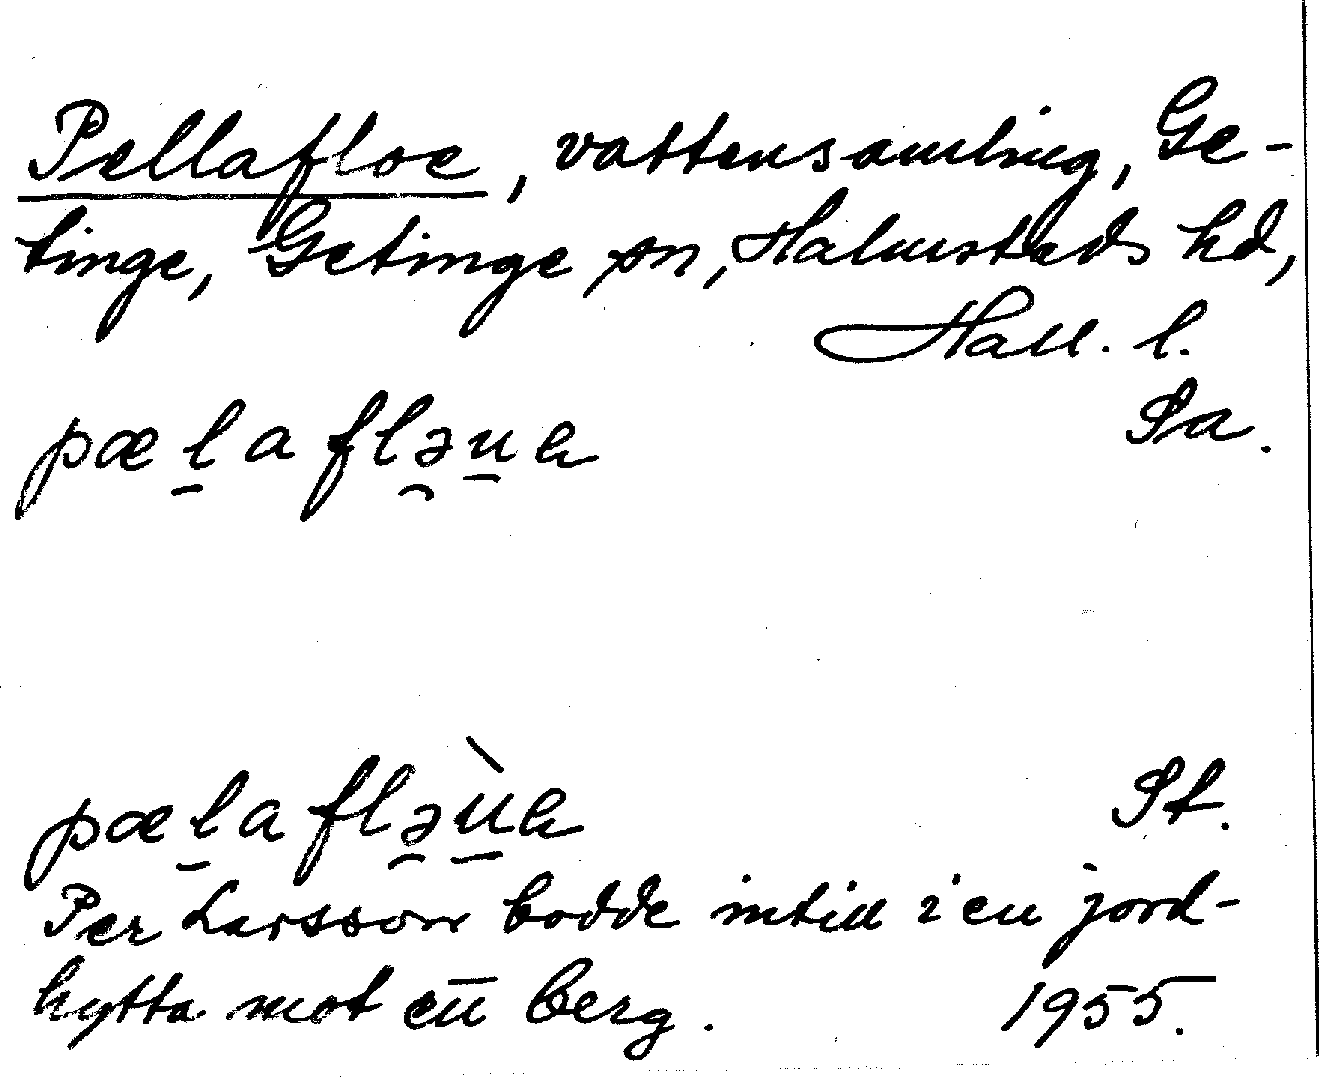 Pellafloe, vattensamling, Ge-
tinge, Getinge sn, Halmstads hd,
Hall. l.
pæl̠aflə̯u̠a Sa.
pæl̠aflə̯ù̠a St.
Per Larsson bodde intill i en jord-
hytta mot en berg. 1955.